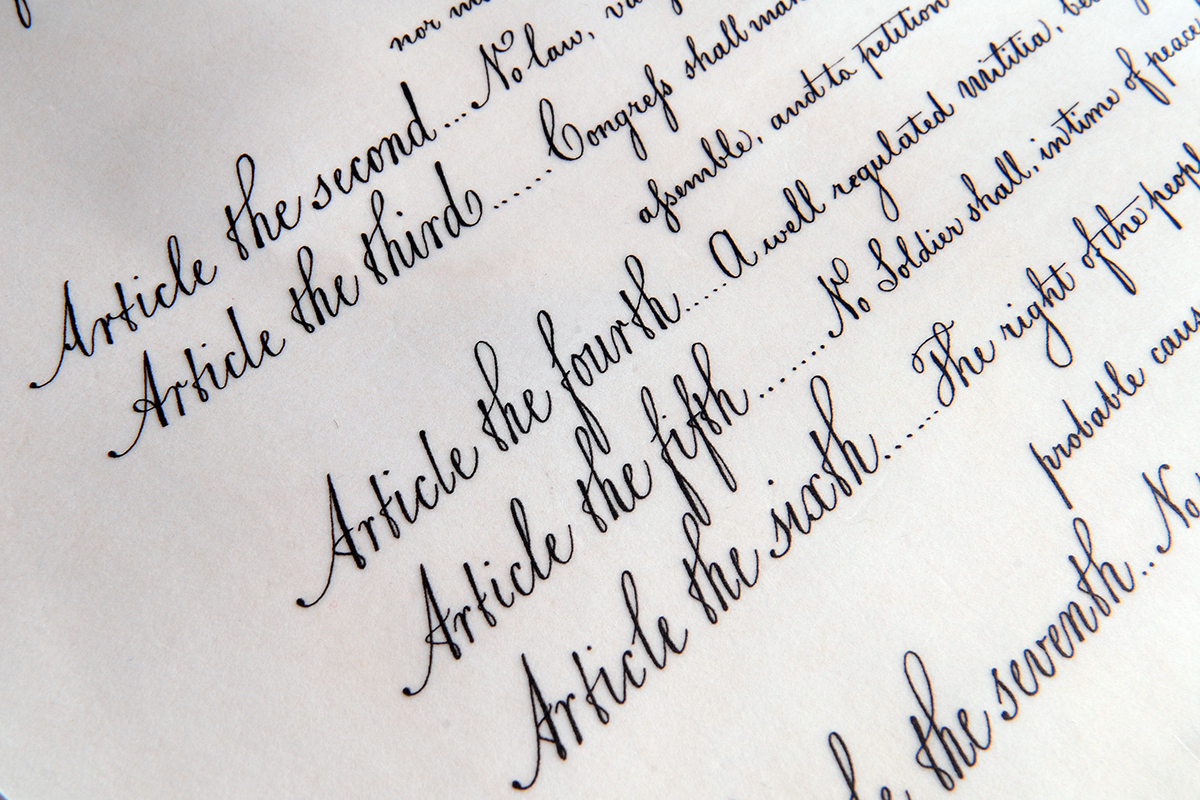 nor
Article the second... No law, va
Article the third...... Congreſs shall mak
aſsemble, and to petition
Article the fourth..... A well regulated militia, be
Article the fifth....... No Soldier shall, in time of peace
Article the sixth...... The right of the peop
probable caus
le the seventh.. No